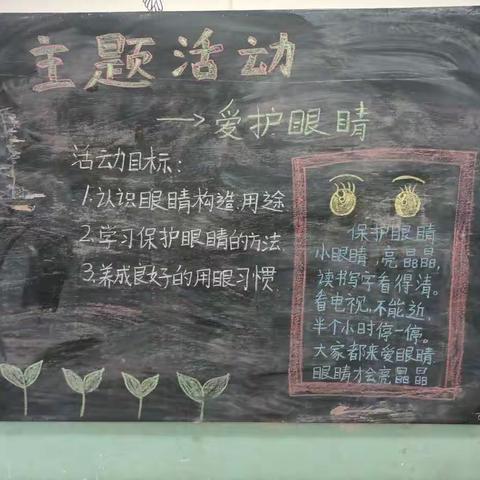 主题活动
→爱护眼睛
活动目标：
1.认识眼睛构造、用途
2.学习保护眼睛的方法
3.养成良好的用眼习惯
保护眼睛
小眼睛，亮晶晶，
读书写字看得清。
看电视，不能近，
半个小时停一停。
大家都来爱眼睛
眼睛才会亮晶晶